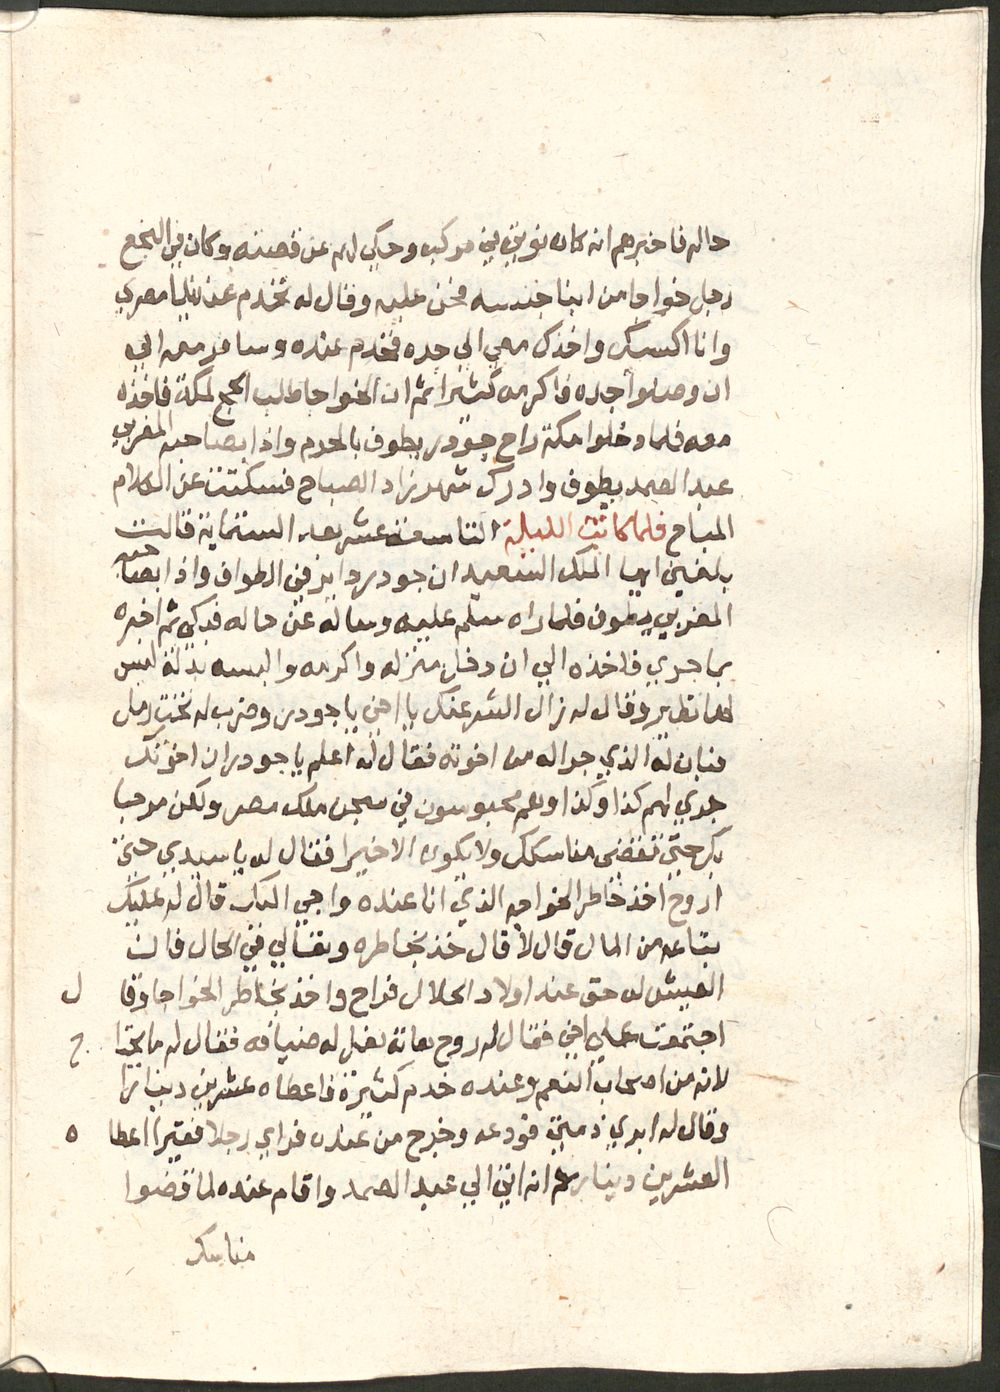 حاله فاخبرهم انه كان نوتي في مركب وحكي لهم عن قصته وكان في النجع
رجل خواجا من ابنا جنسه فحن عليه وقال له تخدم عندنا يا مصري
وانا اكسيك واخذك معي الي جده فخدم عنده وسافر معه الي
ان وصلوا جده فاكرمه كثيرا ثم ان الخواجا طلب الحج لمكة فاخذه
معه فلما دخلوا مكة راح جودر يطوف بالحرم واذا بصاحبه المغربي
عبد الصمد يطوف وادرك شهرزاد الصباح فسكتت عن الكلام
المباح فلما كانت الليلة التاسعة عشر بعد الستماية قالت
بلغني ايها الملك السعيد ان جودر داير في الطواف واذا بصاحبه
المغربي يطوف فلما راه سلم عليه وساله عن حاله فبكي ثم اخبره
بما جري فاخذه الي ان دخل منزله واكرمه والبسه بدلة ليس
لها نظير وقال له زال الشر عنك يا اخي يا جودر وضرب له تخت رمل
فبان له الذي جرا له من اخوته فقال له اعلم يا جودر ان اخوتك
جري لهم كذا وكذا وهم محبوسون في سجن ملك مصر ولكن مرحبا
بك حتي تقضي مناسكك ولا يكون الا خيرا فقال له يا سيدي حتي
اروح اخذ خاطر الخواجه الذي انا عنده واجي اليك قال له عليك
بتاعه من المال قال لا قال خذ بخاطره وتعالي في الحال فان
العيش له حق عند اولاد الحلال فراح واخذ بخاطر الخواجا وقال
اجتمعت علي اخي فقال له روح هاته نعمل له ضيافه فقال له ما يحتاج
لانه من اصحاب النعم وعنده خدم كثيرة فاعطاه عشرين دينارا
وقال له ابري ذمتي فودعه وخرج من عنده فراي رجلا فقيرا اعطاه
العشرين دينار ثم انه اتي الي عبد الصمد واقام عنده لما قضوا
مناسك